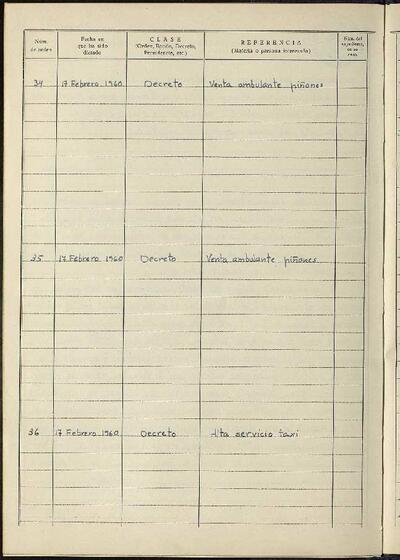 Núm. de orden
Fecha en que ha sido dictado
CLASE
(Orden, Bando, Decreto, Providencia, etc.)
REFERENCIA
(Materia o persona interesada)
34 17 Febrero 1960 Decreto Venta ambulante piñones
35 17 Febrero 1960 Decreto Venta ambulante piñones
36 17 Febrero 1960 Decreto Alta servicio taxi